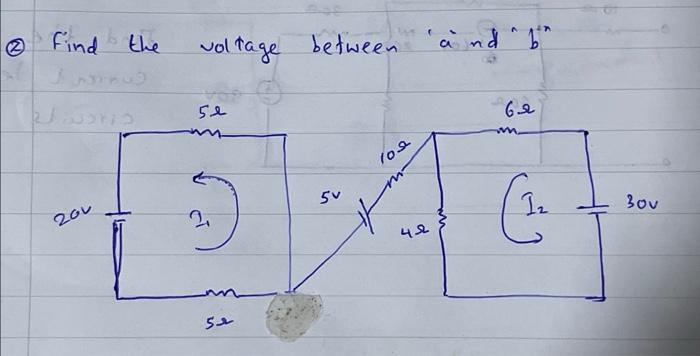 ② Find the voltage between 'a' nd "b"
5Ω
6Ω
10Ω
20V
I₁
5V
4Ω
I₂
30V
5Ω